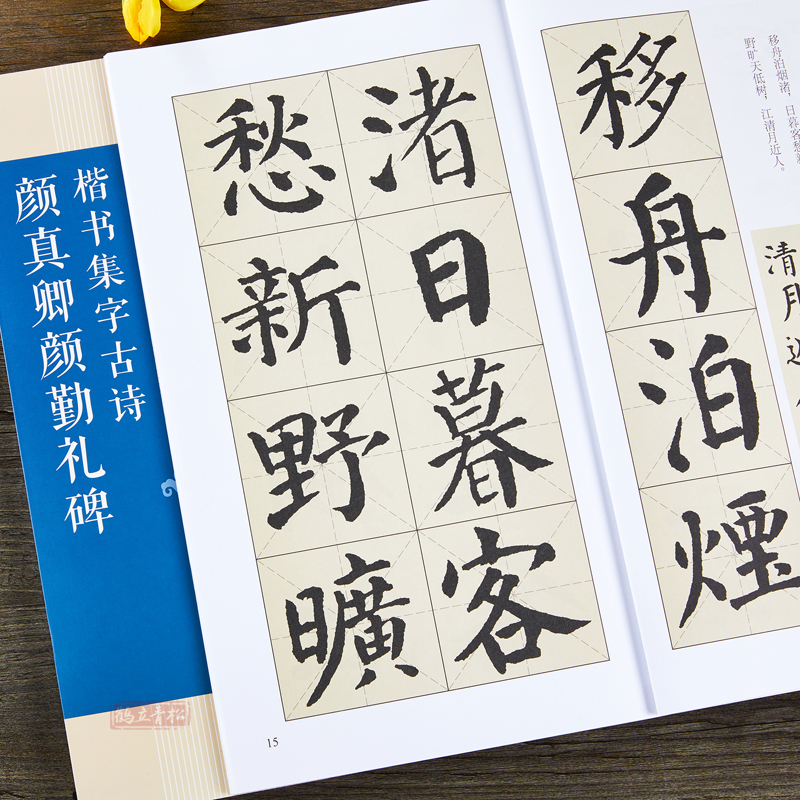 楷书集字古诗
颜真卿颜勤礼碑
移舟泊烟渚，日暮客愁
野旷天低树，江清月近人。
移舟泊煙
渚日暮客
愁新野曠
清月近
15
鹤立青松